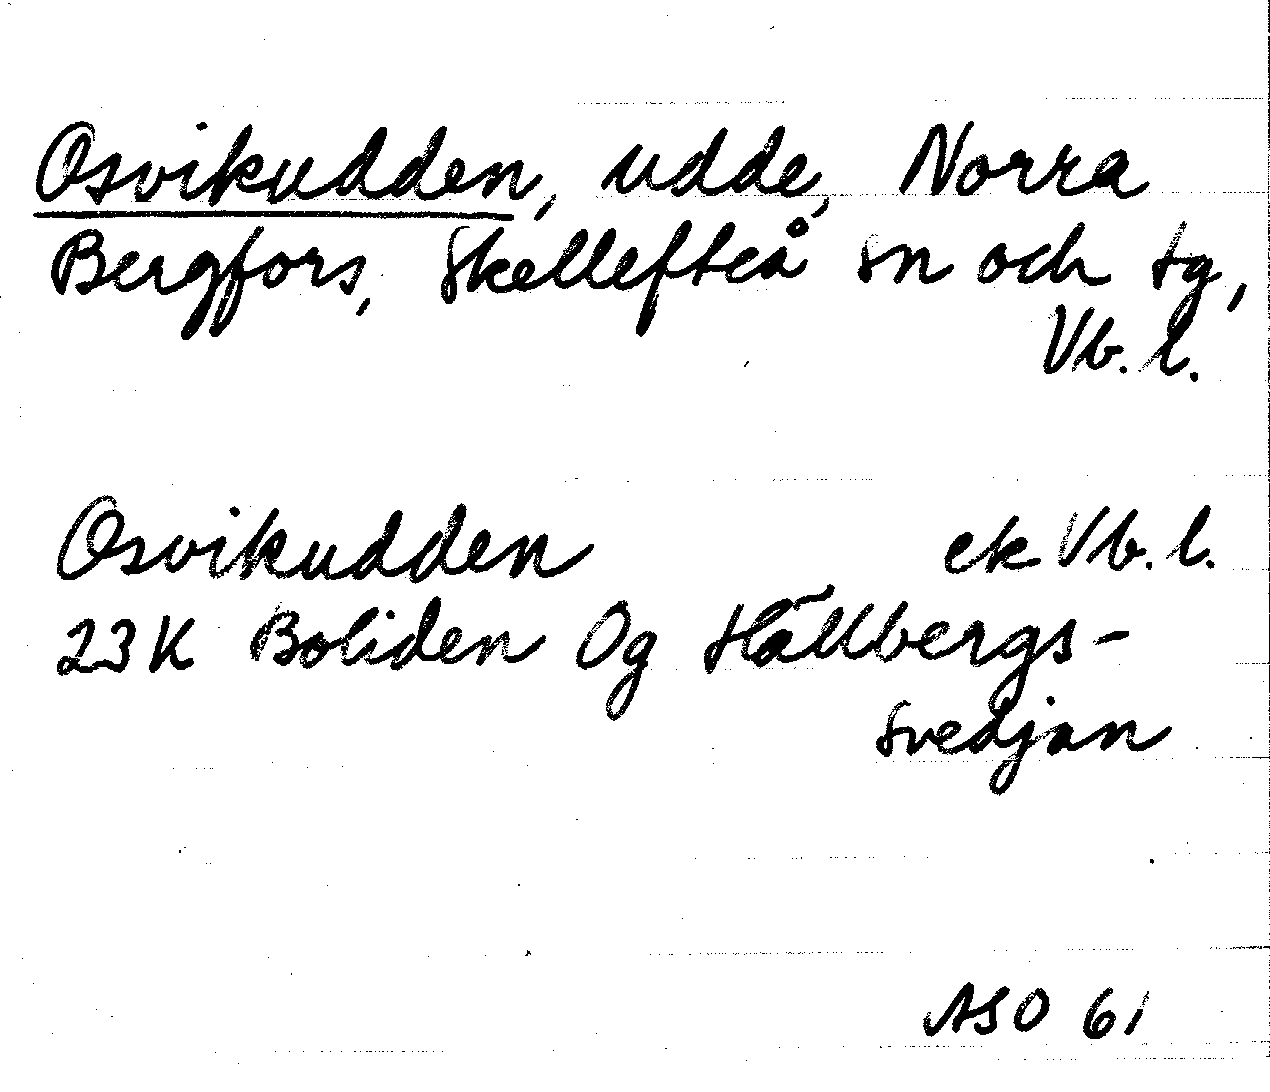 Osvikudden, udde, Norra
Bergfors, Skellefteå sn och tg,
Vb. l.
Osvikudden ek Vb. l.
23K Boliden 0g Hällbergs-
svedjan
ASO 61